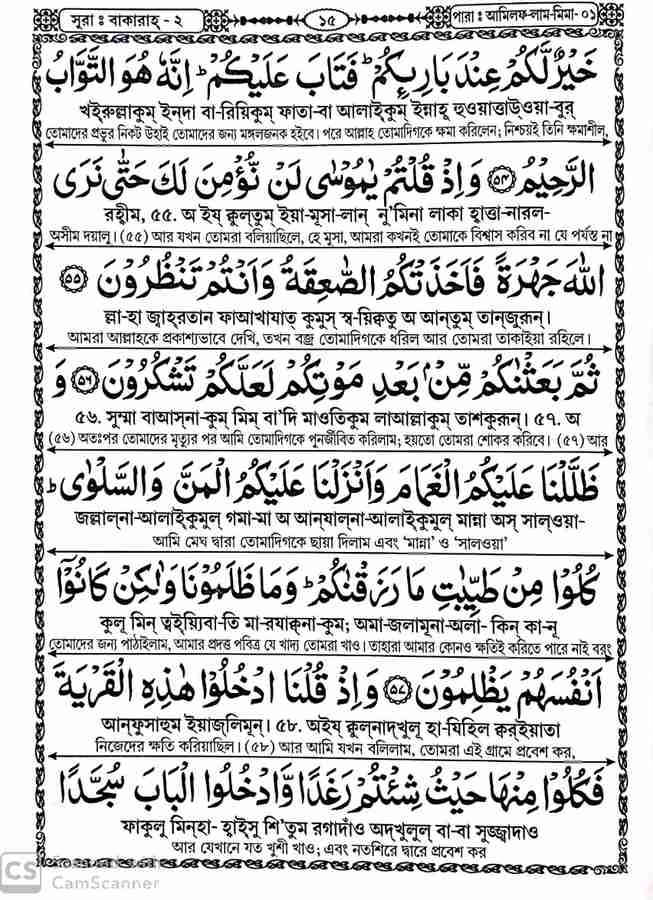 সূরা ঃ বাকারাহ - ২
১৫
পারা ঃ আলিফ-লাম-মিম- ০১
خَيْرٌ لَّكُمْ عِنْدَ بَارِئِكُمْ ؕ فَتَابَ عَلَيْكُمْ ؕ اِنَّهٗ هُوَ التَّوَّابُ
খইরুল্লাকুম্ ইন্দা বা-রিয়িকুম্ ফাতা-বা আলাইকুম্ ইন্নাহূ হুওয়াত্তাউ্ওয়া-বুর্
তোমাদের প্রভুর নিকট উহাই তোমাদের জন্য মঙ্গলজনক হইবে। পরে আল্লাহ তোমাদিগকে ক্ষমা করিলেন; নিশ্চয়ই তিনি ক্ষমাশীল,
الرَّحِيْمُ ۝۵۴ وَ اِذْ قُلْتُمْ يٰمُوْسٰى لَنْ نُّؤْمِنَ لَكَ حَتّٰى نَرَى
রহীম, ৫৫. অ ইয্ ক্বুল্তুম্ ইয়া-মূসা-লান্ নু'মিনা লাকা হাত্তা-নারল-
অসীম দয়ালু। (৫৫) আর যখন তোমরা বলিয়াছিলে, হে মুসা, আমরা কখনই তোমাকে বিশ্বাস করিব না যে পর্যন্ত না
اللهَ جَهْرَةً فَاَخَذَتْكُمُ الصّٰعِقَةُ وَاَنْتُمْ تَنْظُرُوْنَ ۝۵۵
ল্লা-হা জ্বাহ্রতান ফাআখাযাত্ কুমুস্ স্ব-য়িক্বতু অ আন্তুম্ তান্জুরূন্।
আমরা আল্লাহকে প্রকাশ্যভাবে দেখি, তখন বজ্র তোমাদিগকে ধরিল আর তোমরা তাকাইয়া রহিলে।
ثُمَّ بَعَثْنٰكُمْ مِّنْۢ بَعْدِ مَوْتِكُمْ لَعَلَّكُمْ تَشْكُرُوْنَ ۝۵۶ وَ
৫৬. সুম্মা বাআস্না-কুম্ মিম্ বা'দি মাওতিকুম লাআল্লাকুম্ তাশকুরূন্। ৫৭. অ
(৫৬) অতঃপর তোমাদের মৃত্যুর পর আমি তোমাদিগকে পূনর্জীবিত করিলাম; হয়তো তোমরা শোকর করিবে। (৫৭) আর
ظَلَّلْنَا عَلَيْكُمُ الْغَمَامَ وَاَنْزَلْنَا عَلَيْكُمُ الْمَنَّ وَالسَّلْوٰى ؕ
জল্লাল্না-আলাইকুমুল্ গমা-মা অ আন্যাল্না-আলাইকুমুল্ মান্না অস্ সাল্ওয়া-
আমি মেঘ দ্বারা তোমাদিগকে ছায়া দিলাম এবং 'মান্না' ও 'সালওয়া'
كُلُوْا مِنْ طَيِّبٰتِ مَا رَزَقْنٰكُمْ ؕ وَمَا ظَلَمُوْنَا وَلٰكِنْ كَانُوْۤا
কুলূ মিন্ ত্বইয়্যিবা-তি মা-রযাক্বনা-কুম; অমা-জলামূনা-অলা- কিন্ কা-নূ
তোমাদের জন্য পাঠাইলাম, আমার প্রদত্ত পবিত্র যে খাদ্য তোমরা খাও। তাহারা আমার কোনও ক্ষতিই করিতে পারে নাই বরং
اَنْفُسَهُمْ يَظْلِمُوْنَ ۝۵۷ وَ اِذْ قُلْنَا ادْخُلُوْا هٰذِهِ الْقَرْيَةَ
আন্ফুসাহুম ইয়াজ্লিমূন্। ৫৮. অইয্ ক্বুল্নাদ্খুলূ হা-যিহিল ক্বর্ইয়াতা
নিজেদের ক্ষতি করিয়াছিল। (৫৮) আর আমি যখন বলিলাম, তোমরা এই গ্রামে প্রবেশ কর,
فَكُلُوْا مِنْهَا حَيْثُ شِئْتُمْ رَغَدًا وَّادْخُلُوا الْبَابَ سُجَّدًا
ফাকুলু মিন্হা- হাইসু শি'তুম রগাদাঁও অদ্খুলুল্ বা-বা সুজ্জাদাও
আর যেখানে যত খুশী খাও; এবং নতশিরে দ্বারে প্রবেশ কর
CS
CamScanner